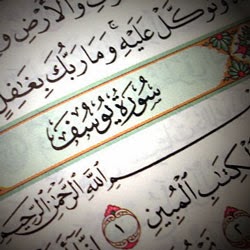 وَالْأَرْضِ وَ
وَتَوَكَّلْ عَلَيْهِ ۚ وَمَا رَبُّكَ بِغَٰفِلٍ
سُورَةُ يُوسُفَ
بِسْمِ اللَّهِ الرَّحْمَٰنِ الرَّحِيمِ
الْكِتَٰبِ الْمُبِينِ ١